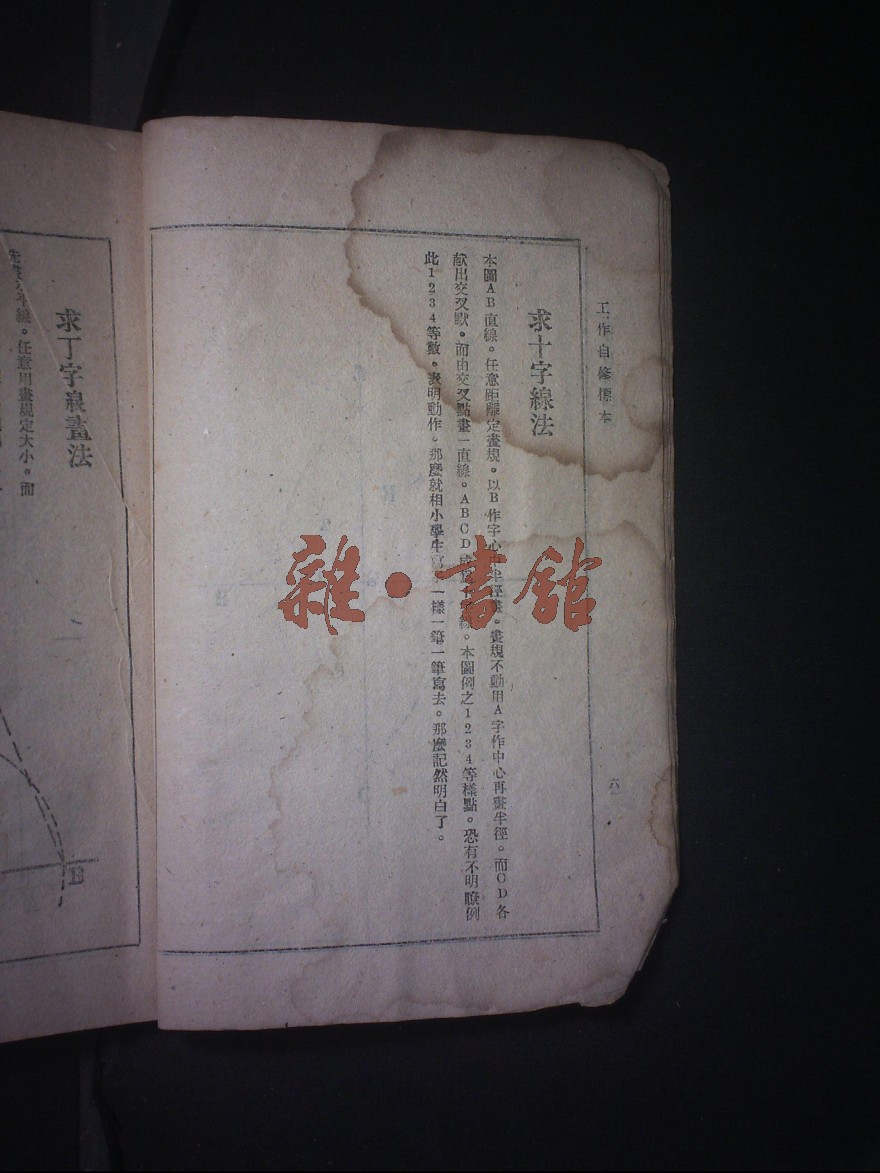 工作自修標本
六
求十字線法
本圖AB直線。任意距離定畫規。以B作字心 半徑 。畫規不動用A字作中心再畫半徑。而CD各
献出交叉歟。而由交叉點畫一直線。ABCD 線。本圖例之1234等樣點。恐有不明瞭例
此1234等數。表明動作。那麼就相小學生 一樣一筆一筆寫去。那麼記然明白了。
求丁字線畫法
線。任意用畫規定大小。而
B
雜·書館